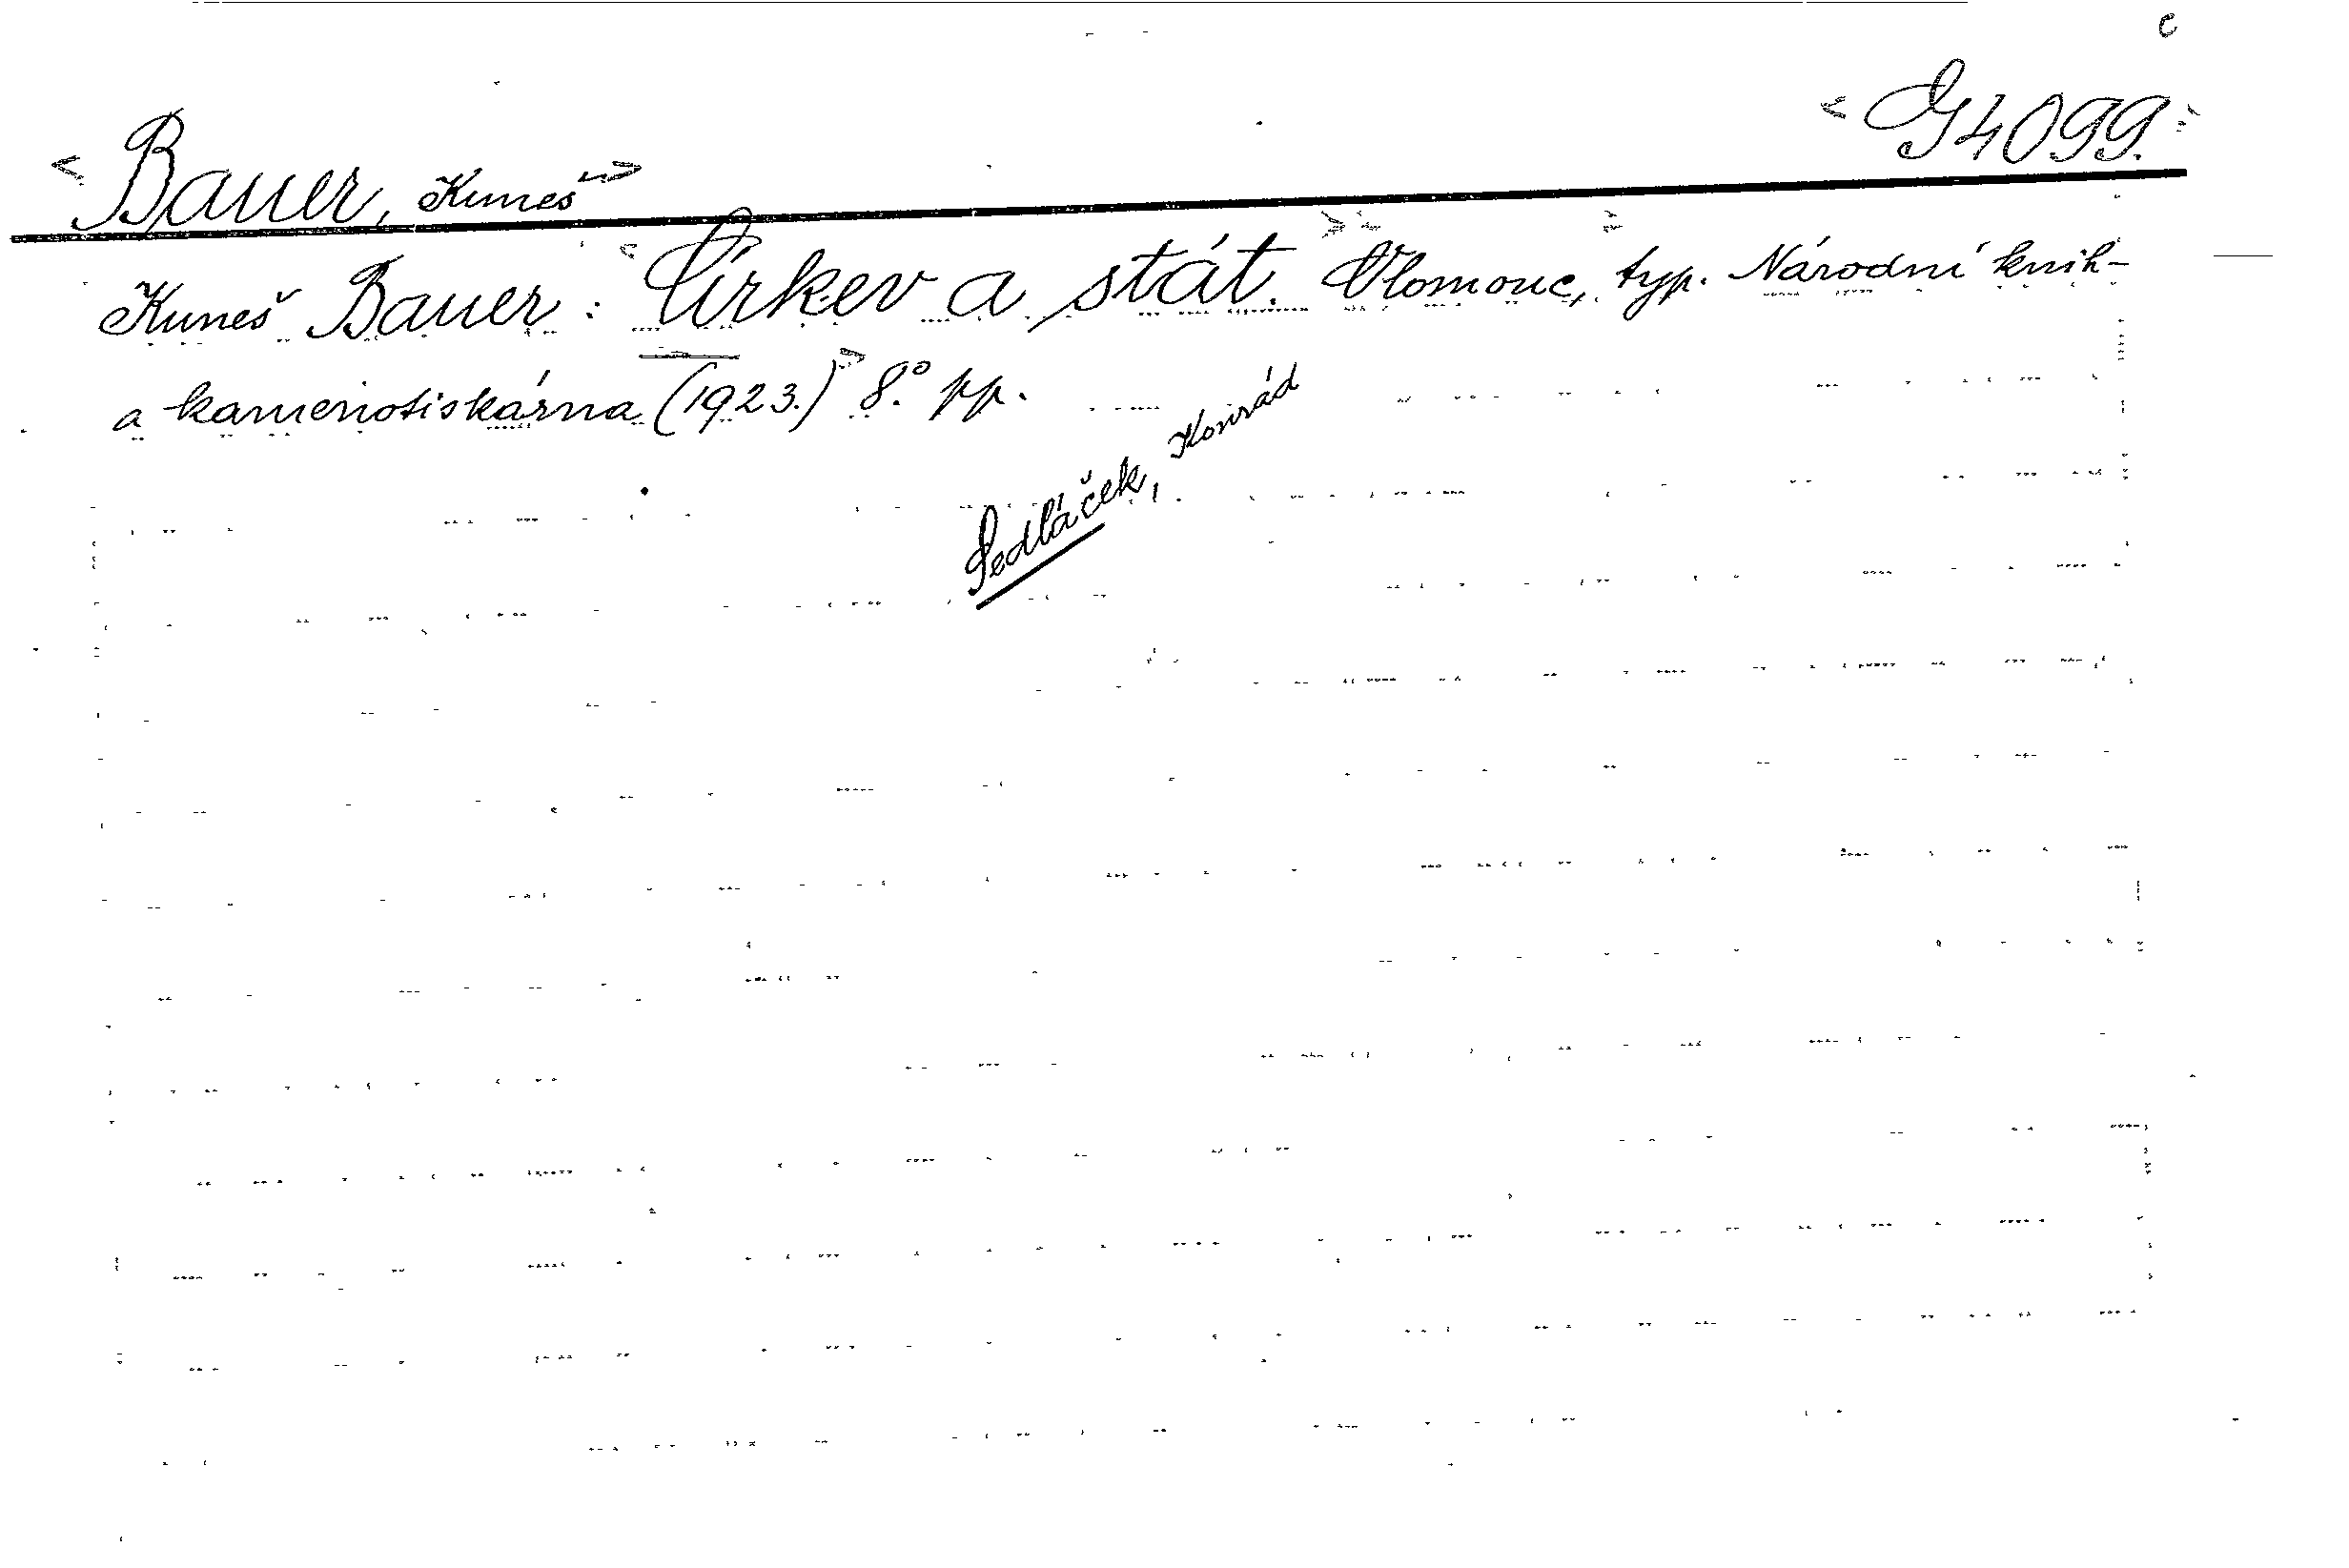 c
<G4099.>
<Bauer, Kuneš>
Kuneš Bauer: <Církev a stát.> Olomouc, typ. Národní knih-
a kamenotiskárna (1923.)> 8.° pp.
Sedláček, Konrád